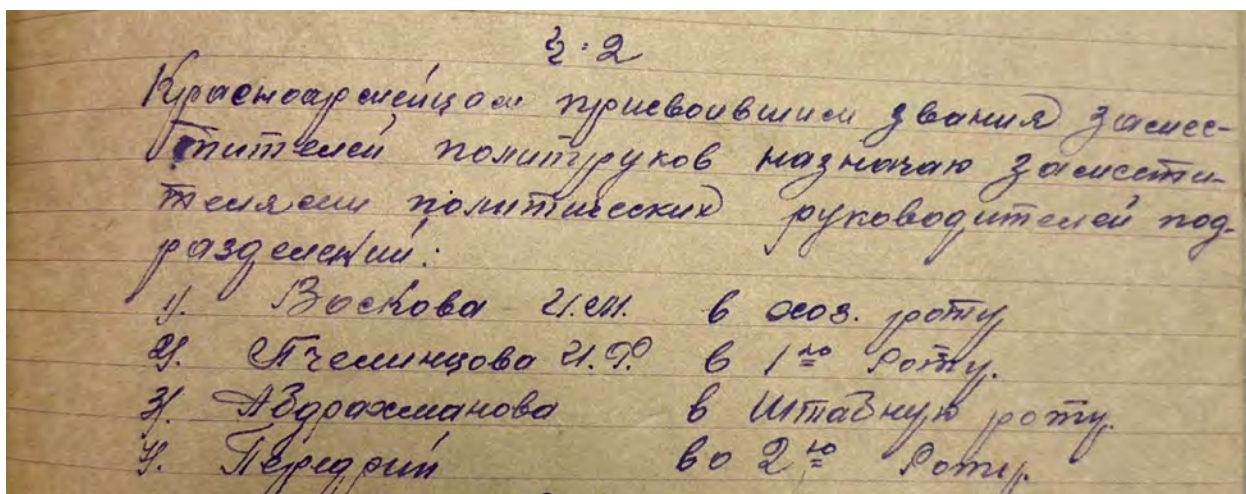 § 2
Красноармейцам присвоившим звания замес-
тителей политруков назначаю замести-
телями политических руководителей под-
разделений:
1). Воскова И.М. в хоз. роту
2). Пчелинцова И.Ф. в 1ую Роту.
3). Абдрахманова в штабную роту.
4. Передрий во 2ую Роту.